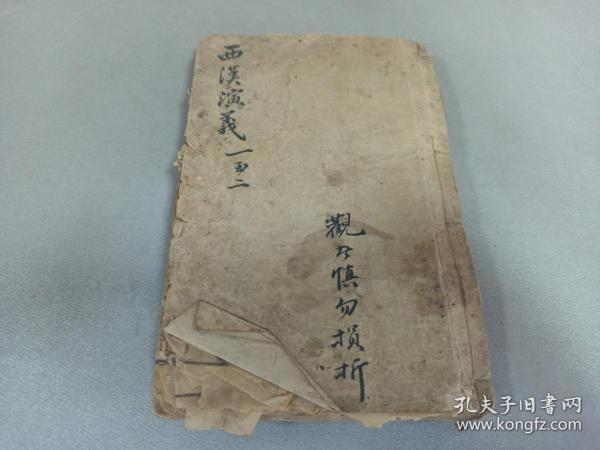 西漢演義 一至二
觀者慎勿損折
孔夫子旧书网
www.kongfz.com